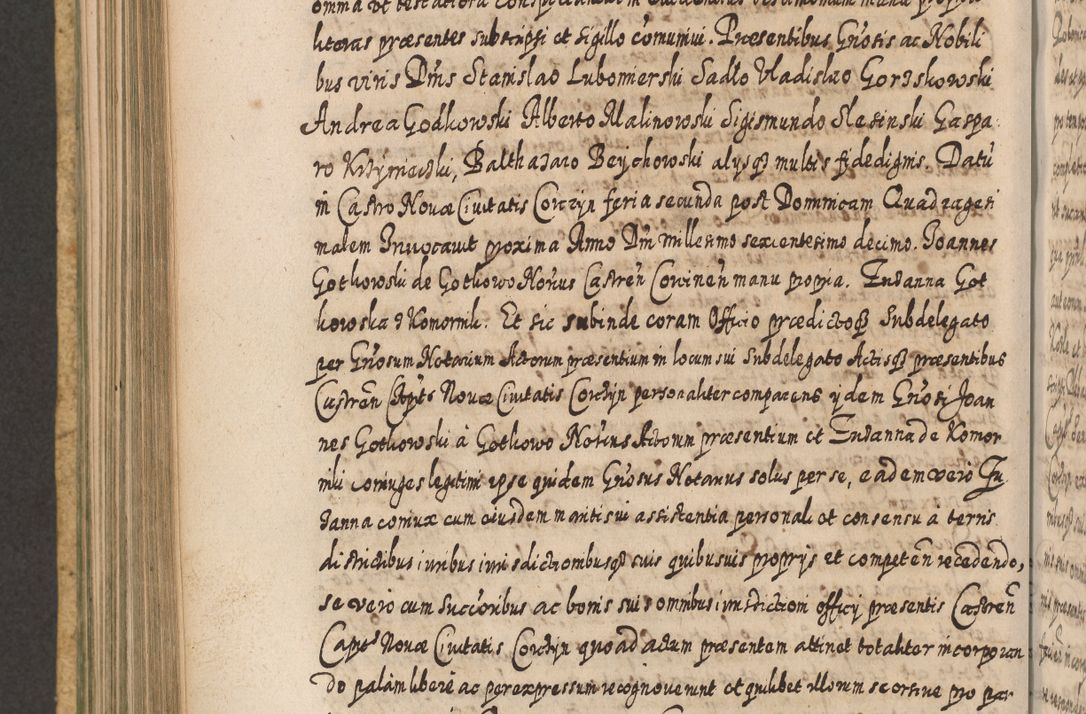 literas præsentes subscripsi et sigillo comunivi. Præsentibus Gnosis ac Nobili
bus viris Dnis Stanislao Lubomierski Sadlo Vladislao Gorzskowski
Andrea Godkowski Alberto Malinowski Sigismundo Slesinski Gaspa
ro Balthazaro Beychowski alysq3 multis fidedignis. Datu
in Castro Novæ Civitatis Corczyn feria secunda post Dominicam Quadragesi
malem Invocavit proxima Anno Dni millesimo sexcentesimo decimo. Joannes
Gotkowski de Gotkowo Norius Castren Corcinen manu propria. Zuzanna Got
kowska z Komornik. Et sic subinde coram Officio prædictoq3 Subdelegato
per Gnosum Notarium Actorum præsentium in locum sui Subdelegato Actisq3 præsentibus
Castren Captis Novæ Civitatis Corczyn personaliter comparens ydem Gnosi Joan
nes Gotkowski à Gotkowo Norius Actorum præsentium et Zuzanna de Komor
niki coniuges legitimi ipse quidem Gnosus Notarius solus per se, eadem vero Zu
zanna coniux cum eiusdem mariti sui assistentia personali et consensu a terris
districtibus iuribus iurisdictionibusq3 suis quibusvis proprys et competen recedendo,
se vero cum successoribus ac bonis suis omnibus iurisdictioni officy præsentis Castren
Captis Novæ Civitatis Corczyn quoad actum præsentem attinet totaliter incorporan
do palam libere ac per expressum recognoverunt et quilibet illorum seorsive pro par